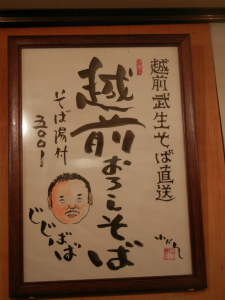 越前武生そば直送
越前おろしそば
そば湯付
五〇〇-
じじばば